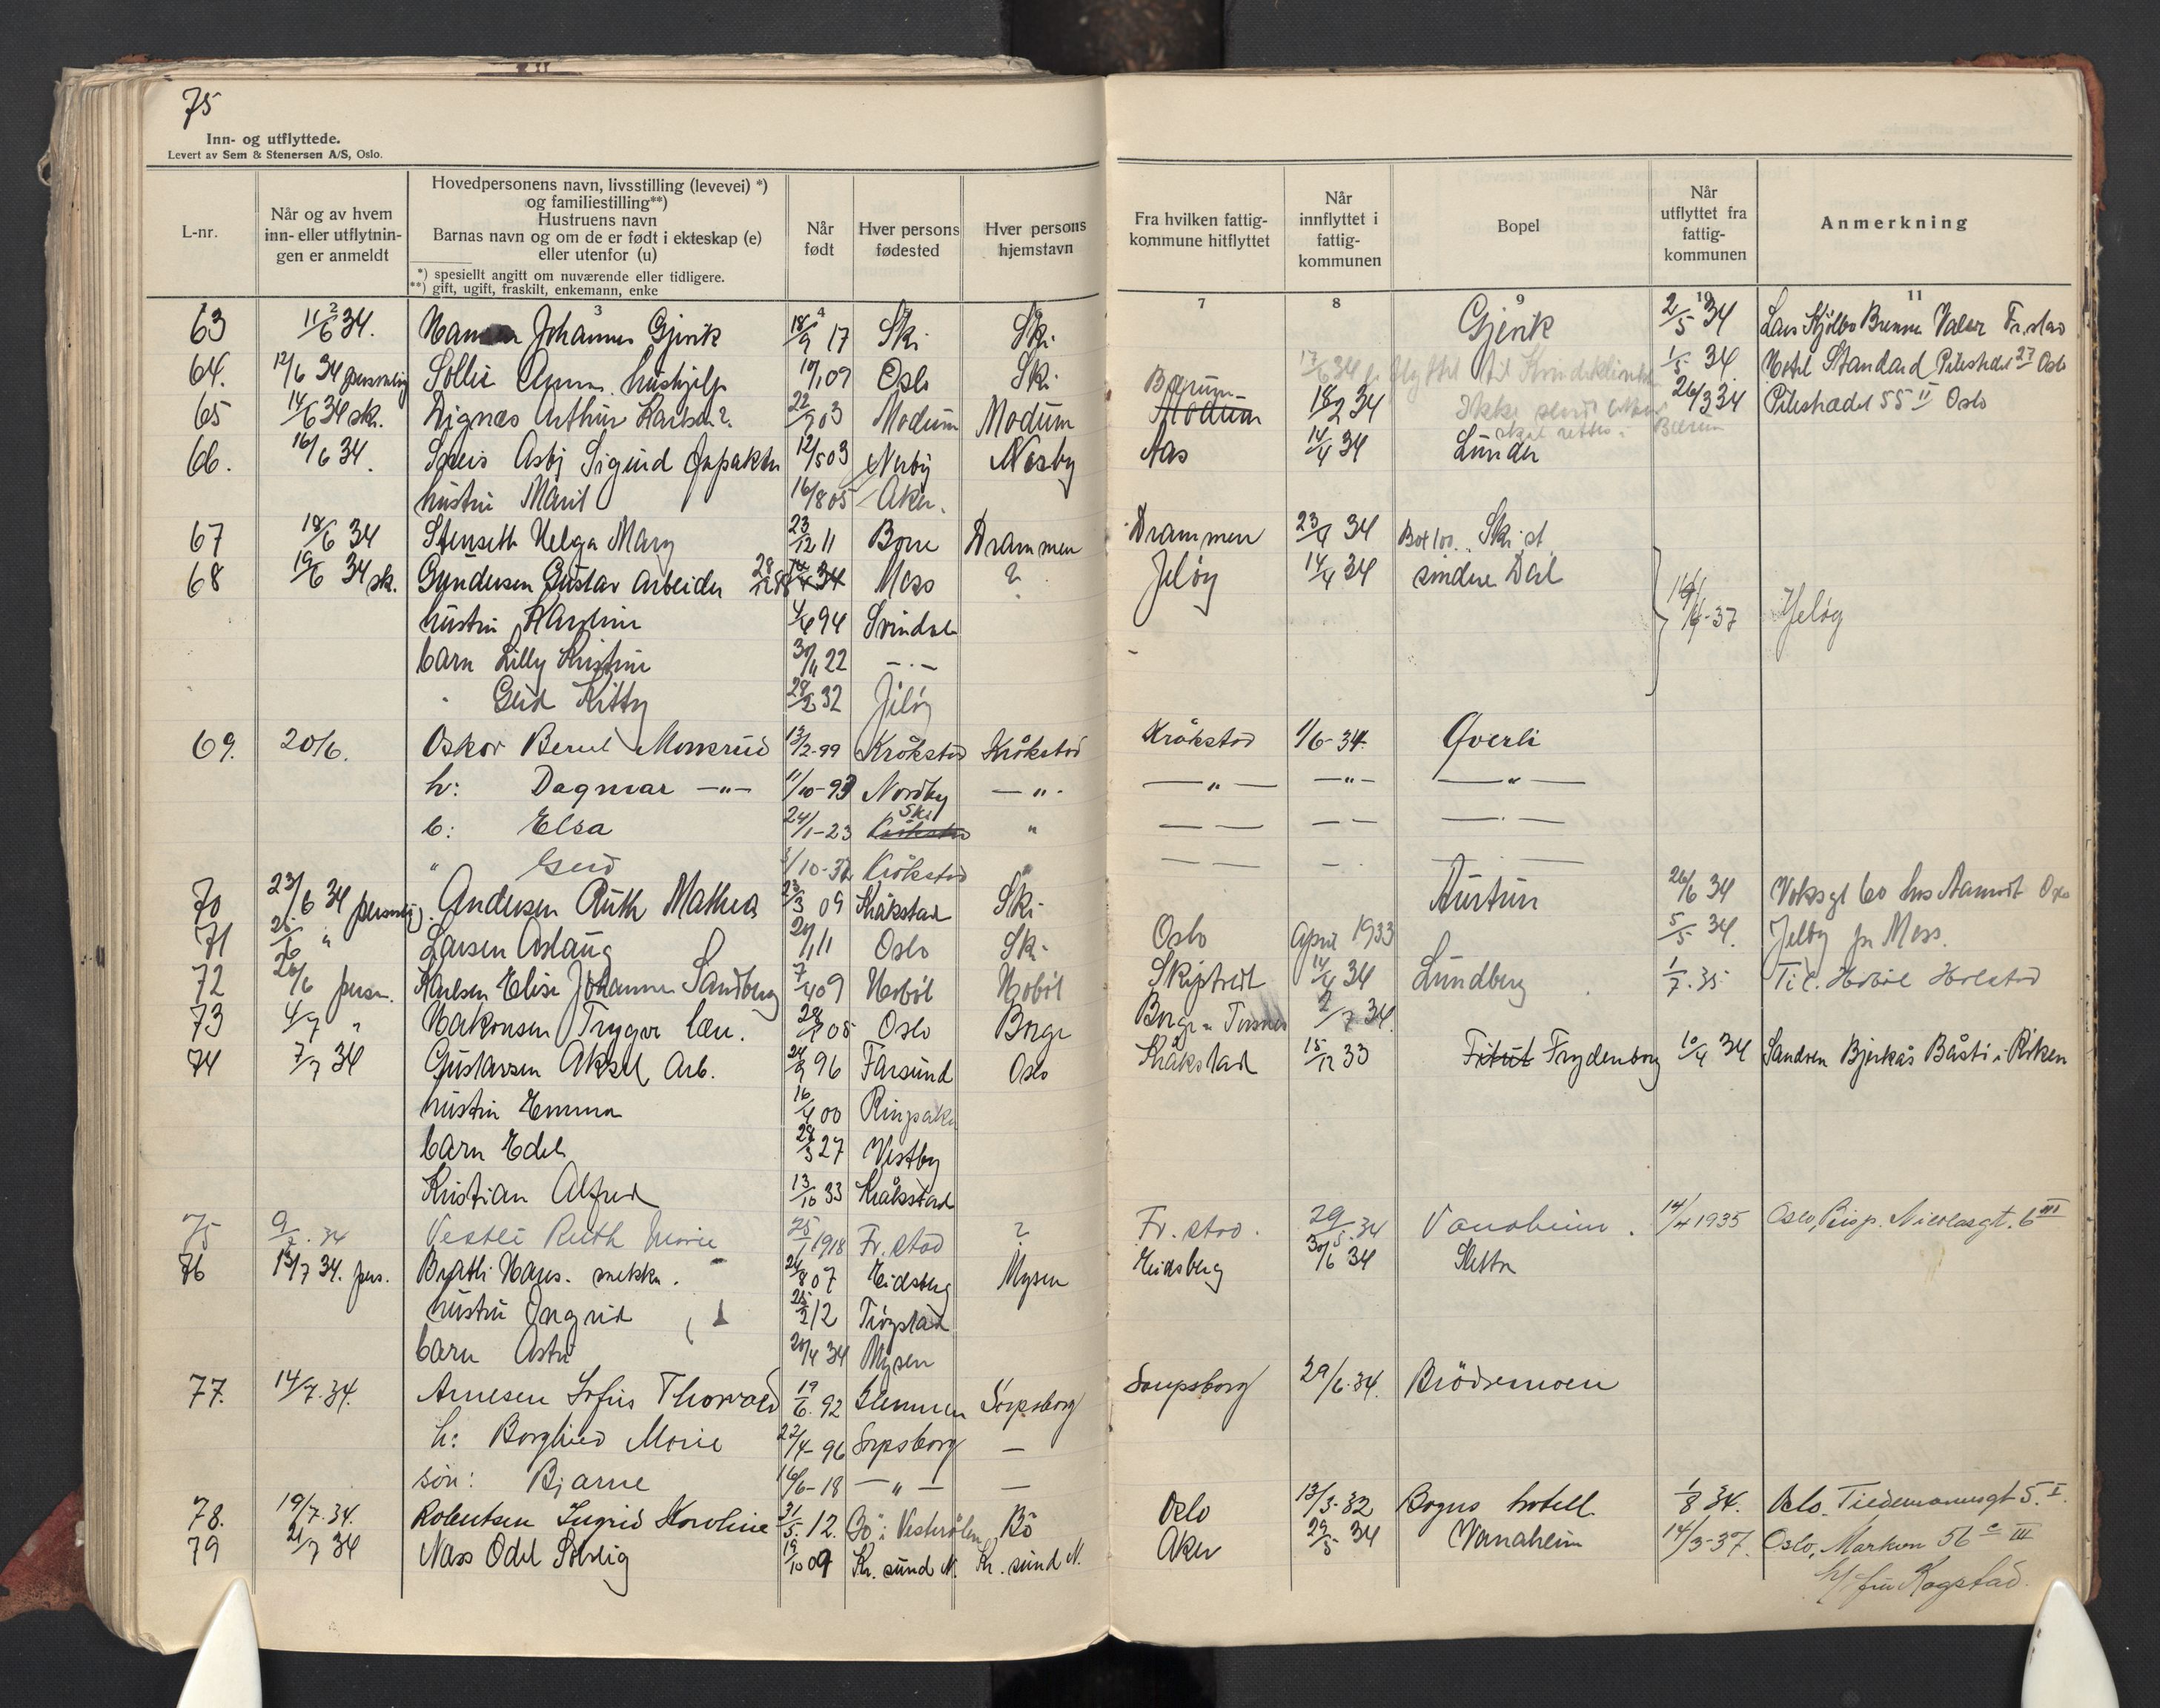 75
Inn- og utflyttede.
Levert av Sem & Stenersen A/S, Oslo.
L-nr.
Når og av hvem inn- eller utflytnin-gen er anmeldt
Hovedpersonens navn, livsstilling (levevei) *)
og familiestilling**)
Hustruens navn
Barnas navn og om de er født i ekteskap (e)
eller utenfor (u)
*) spesiellt angitt om nuværende eller tidligere.
**) gift, ugift, fraskilt, enkemann, enke
Når født
Hver persons fødested
Hver persons hjemstavn
Fra hvilken fattig-kommune hitflyttet
Når innflyttet i fattig-kommunen
Bopel
Når utflyttet fra fattig-kommunen
Anmerkning
2 3 4 7 8 9 10 11
63 11/6 34. Johannes Gjerik 18/9 17 Ski Ski Gjerik 2/5 34
64. 12/6 34 personlig Sollie Anna hushjelp 09 Oslo Ski Bærum 1/5 34 Hotel Standard Pilestredet 27 Oslo
65 14/6 34 sk. Arthur 22/7 03 Modum Modum Modum 18/2 34 26/3 34 Pilestrædet 55 II Oslo
66. 16/6 34. Asbj Sigurd 12/5 03 Aas 14/4 34 Lunder
hustru Marit 16/8 05 Aker.
67 18/6 34 Stenseth Helga Mary 23/12 11 Borre Drammen Drammen 23/4 34 Box 100. Ski st.
68 19/6 34 sk. Gundersen Gustav Arbeider 28/12 88 14/4 34 Moss ? Jeløy 14/4 34 søndre Dal 37 Jeløy
hustru 94 Svindal
barn Lilly Kristine 30/11 22 — . —
Gerd Kitty 32 Jeløy
69. 20/6. Oskar Bernt 13/2-99 Kråkstad Kråkstad Kråkstad 1/6-34. Øverli
h: Dagmar —"— 11/10-93 Nordby —"— —"— —"— —"—
b: Elsa 24/1-23 Kråkstad Ski "
" Gerd /10-32 Kråkstad "
70 23/6 34 personlig. Andersen Ruth Mathea 23/3 09 Kråkstad Ski Austun 26/6 34 Voksgt 60 hos Aamodt Oslo
71 25/6 " Larsen Aslaug 11 Oslo Ski Oslo April 1933 5/5 34. Jeløy pr Moss.
72 26/6 person. Karlsen Elise Johanne Sandberg 7/4 09 Hobøl Hobøl Skiptvedt 14/4 34 Lundberg 1/7.35 Til Hobøl
73 4/7 " Hakonsen Trygve 05 Oslo Borge Borge 2/7 34.
74 7/7 34 Gustavsen Aksel Arb. 24/9 96 Farsund Oslo Kråkstad 15/12 33 Frydenborg 10/4 34 Sandven Bjerkås Båstø i Røken
hustru Emma 16/4 00 Ringsaker
barn Edel 28/3 27 Vestby
Kristian Alfred 13/10 33 Kråkstad
75 9/7.34 Vestli Ruth Marie 25/1 1918 Fr.stad ? Fr.stad. 29/5.34 Vanaheim. 14/4 1935 Oslo, Bisp. Nicolasgt. 6 III
76 13/7 34. pers. Bratli Hans. snekker. 24/8 07 Eidsberg Mysen Eidsberg 30/6 34 Sletta
hustru Ingrid 25/2 12 Trøgstad
barn 20/4 34 Mysen
77. 14/7.34. Arnesen Sofus Thorvald 19/6.92 Glemmen Sarpsborg Sarpsborg 29/6.34. Brödremoen
h: Borghild Marie 22/4-96 Sarpsborg —
sön: Bjarne 16/6-18 —"— —
78. 19/7.34. Robertsen Ingrid Karoline 31/5.12. Bö i Vesterålen Bö Oslo 13/3-32 Bøgers hotell 1/8 34. Oslo. Tiedemannsgt 5. I.
79 21/7 34 Næss Odel Solveig 19/10 09 Kr. sund N. Kr. sund N. Aker 29/5 34 Vanaheim 14/3-37. Oslo, Markvn 56 c III
h/ fru Kogstad.